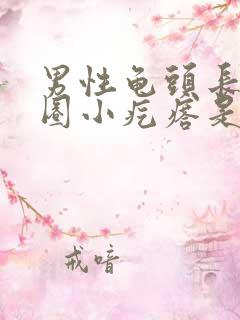 男性龟頭長
圈小疙瘩是
戒喑